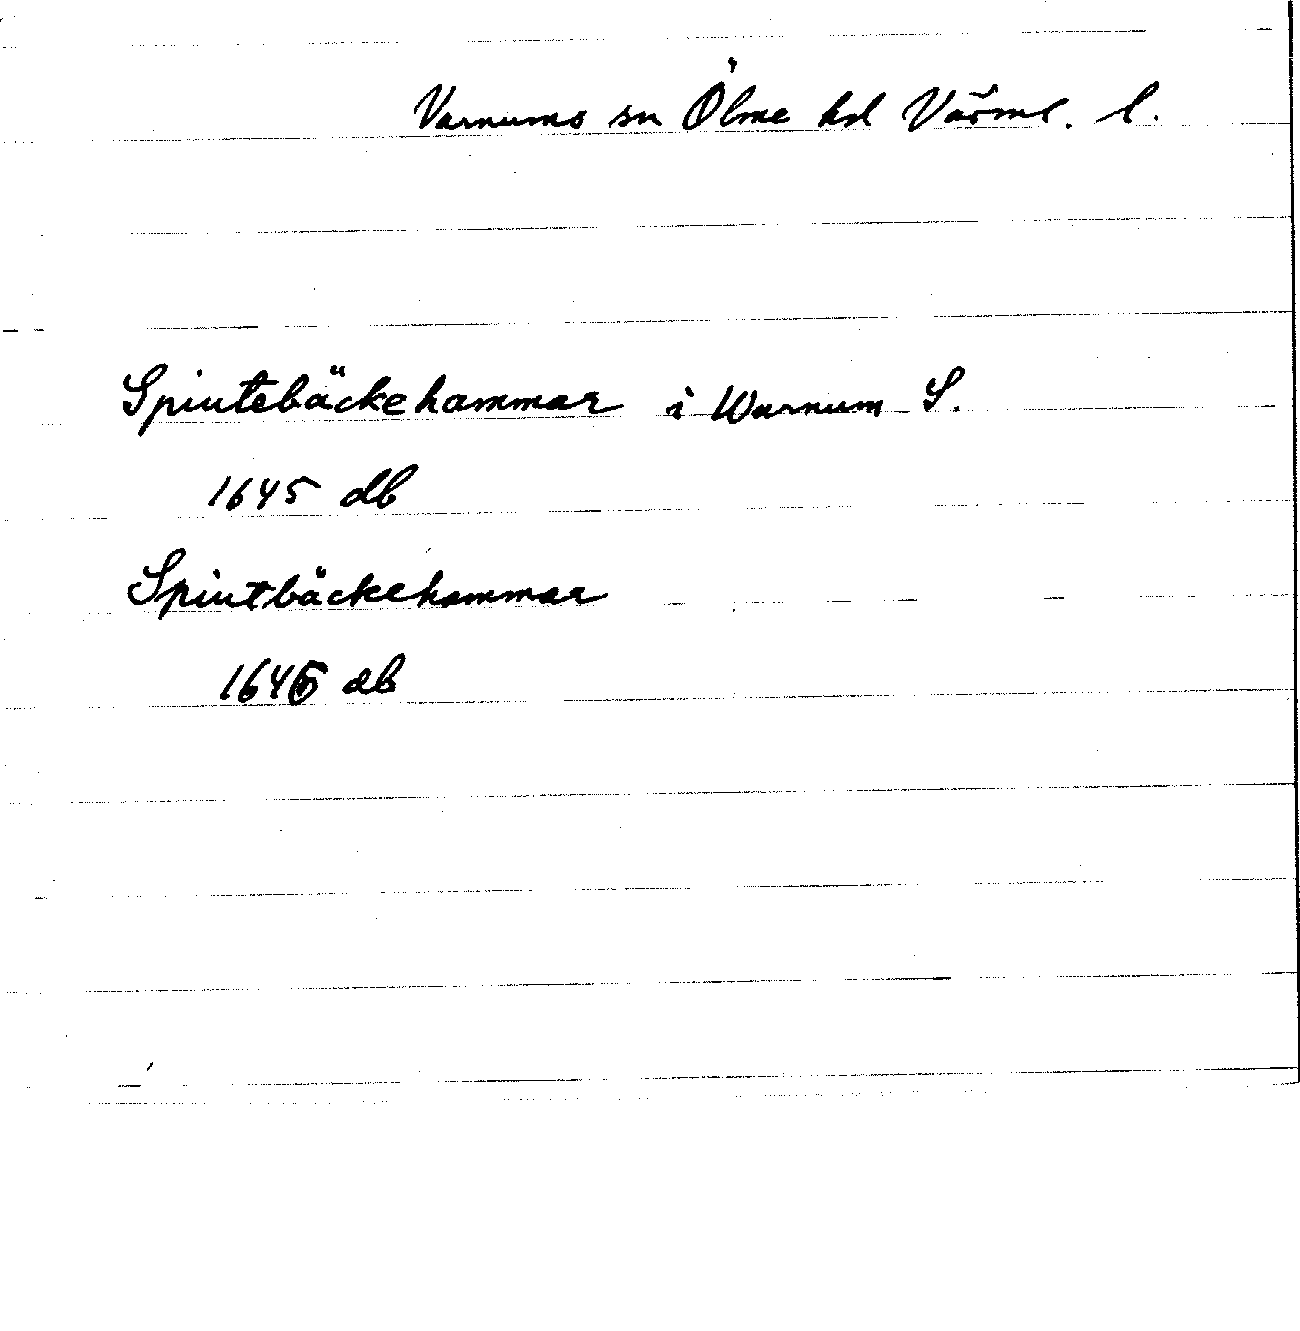 Varnums sn Ölme hd Värml. l.
Spintebäckehammar i Warnum S.
1645 db
Spintbäckehammar
1646 db